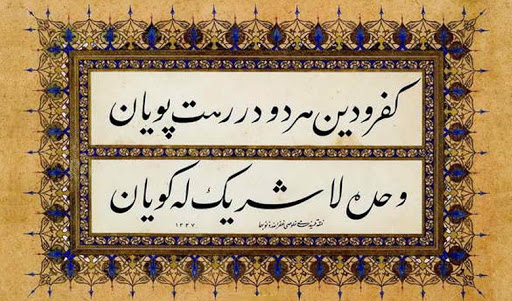 کفر و دین هر دو در رهت پویان
وحده لا شریک له گویان
۱۳۳۷